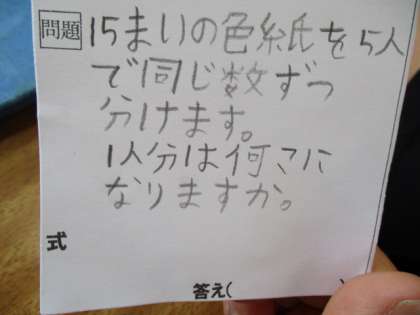 問題 15まいの色紙を5人
で同じ数ずつ
分けます。
1人分は何こに
なりますか。
式
答え( )